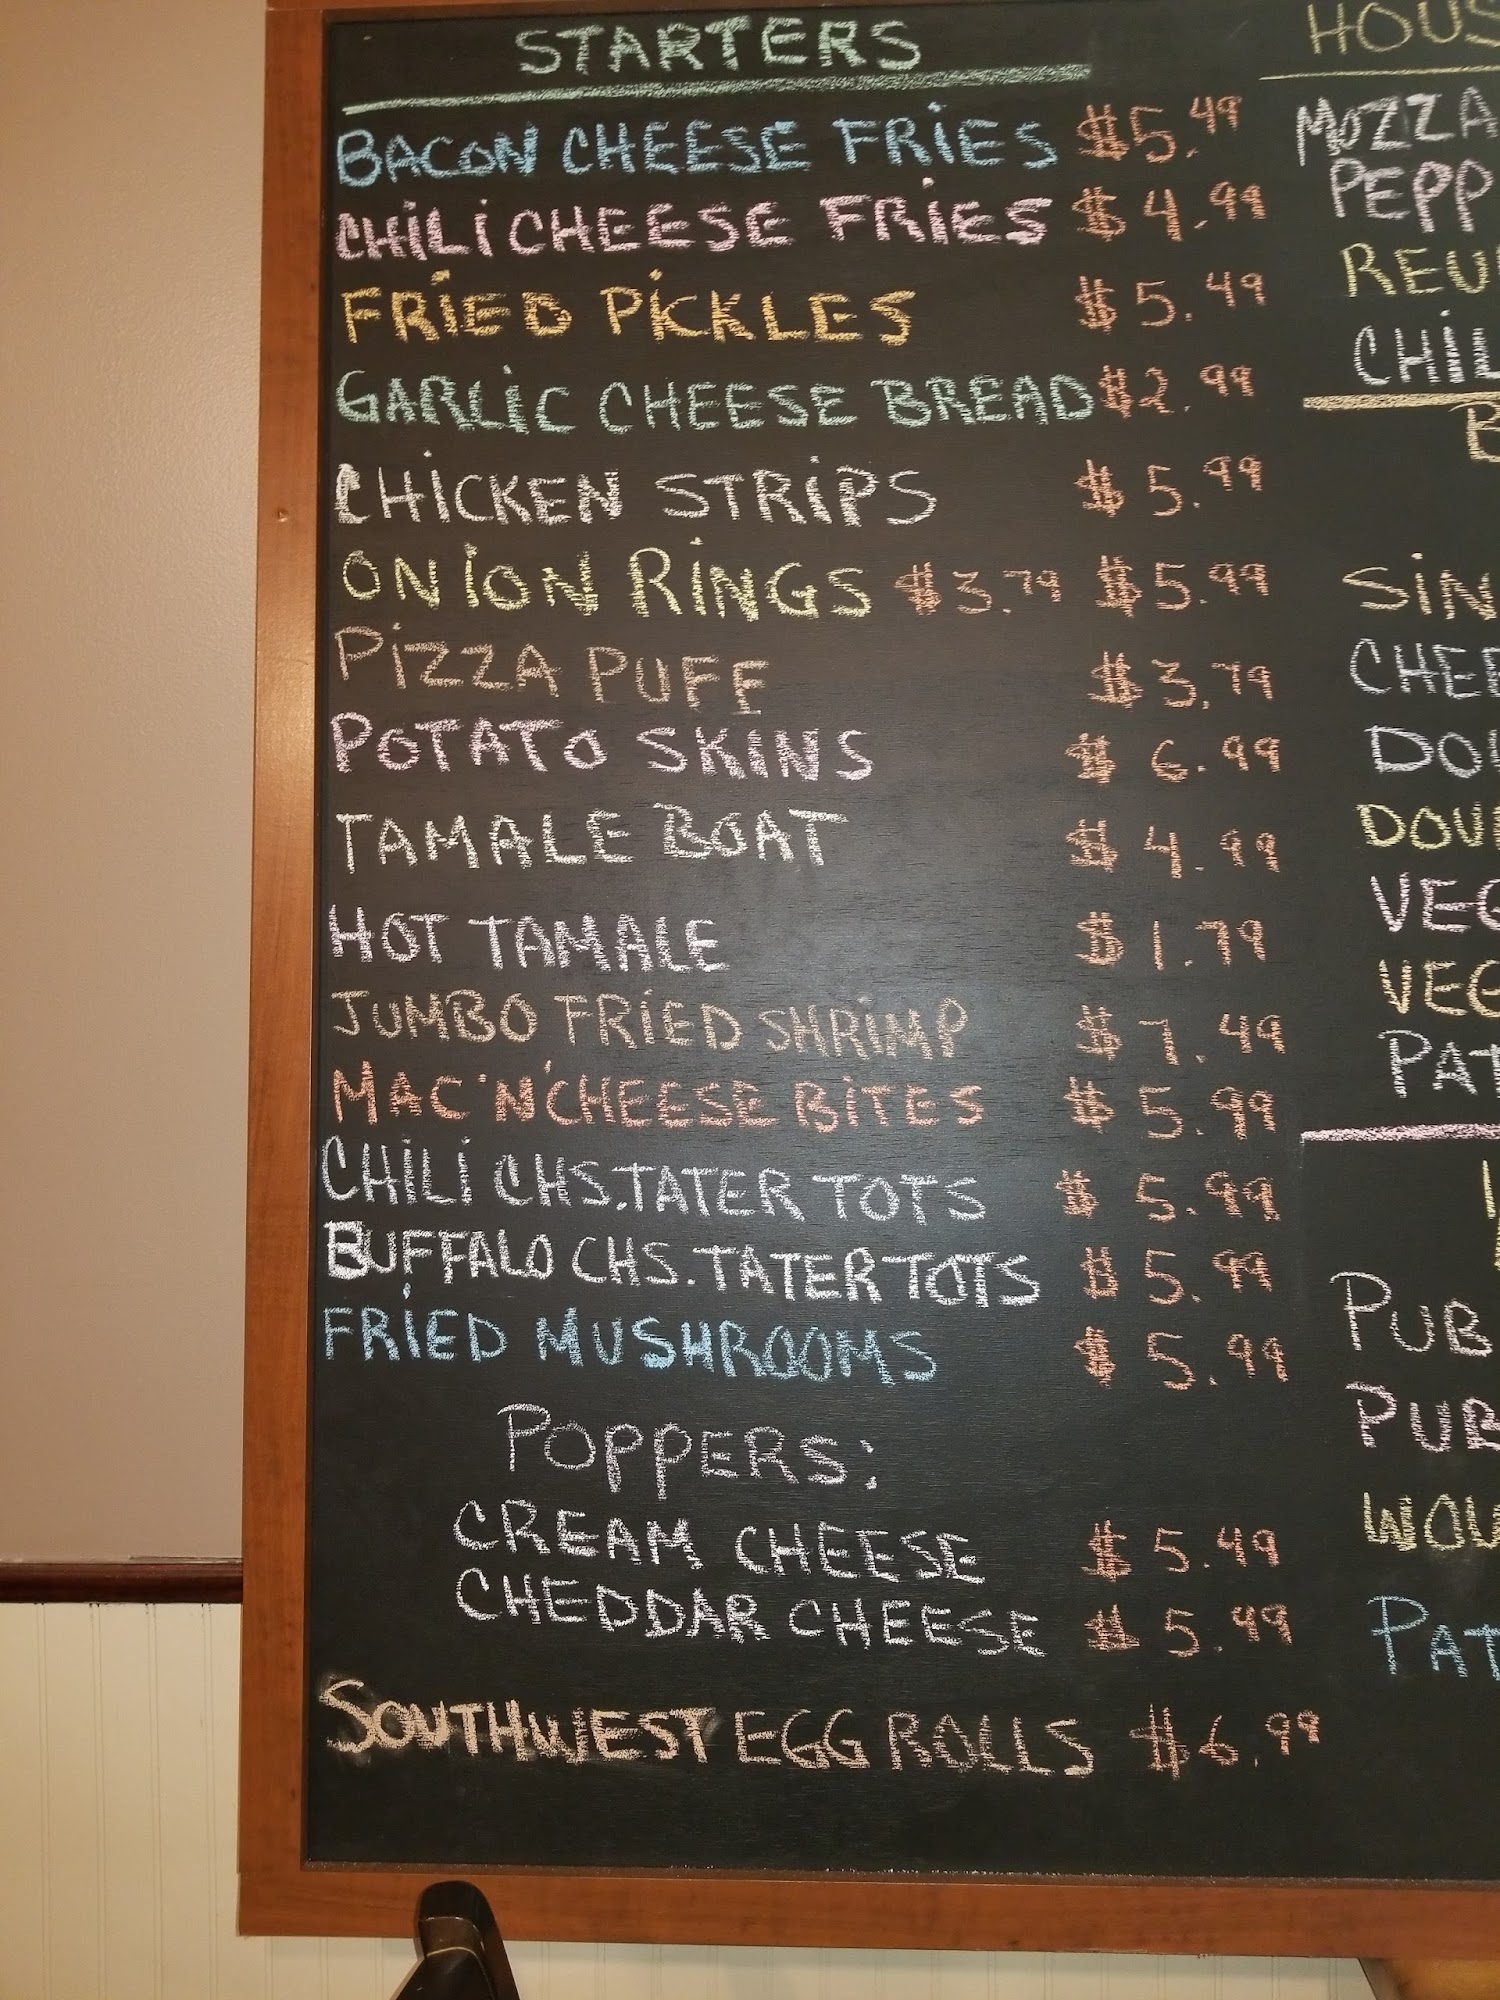 STARTERS
BACON CHEESE FRIES $5.49
CHILI CHEESE FRIES $4.99
FRIED PICKLES $5.49
GARLIC CHEESE BREAD $2.99
CHICKEN STRIPS $5.99
ONION RINGS $3.79 $5.99
PIZZA PUFF $3.79
POTATO SKINS $6.99
TAMALE BOAT $4.99
HOT TAMALE $1.79
JUMBO FRIED SHRIMP $7.49
MAC 'N' CHEESE BITES $5.99
CHILI CHS. TATER TOTS $5.99
BUFFALO CHS. TATER TOTS $5.99
FRIED MUSHROOMS $5.99
POPPERS:
CREAM CHEESE $5.49
CHEDDAR CHEESE $5.49
SOUTHWEST EGG ROLLS $6.99
HOUS
MOZZA
PEPP
REU
CHIL
B
SIN
CHEE
DOU
DOU
VEG
VEG
PAT
PUB
PUB
WOU
PAT